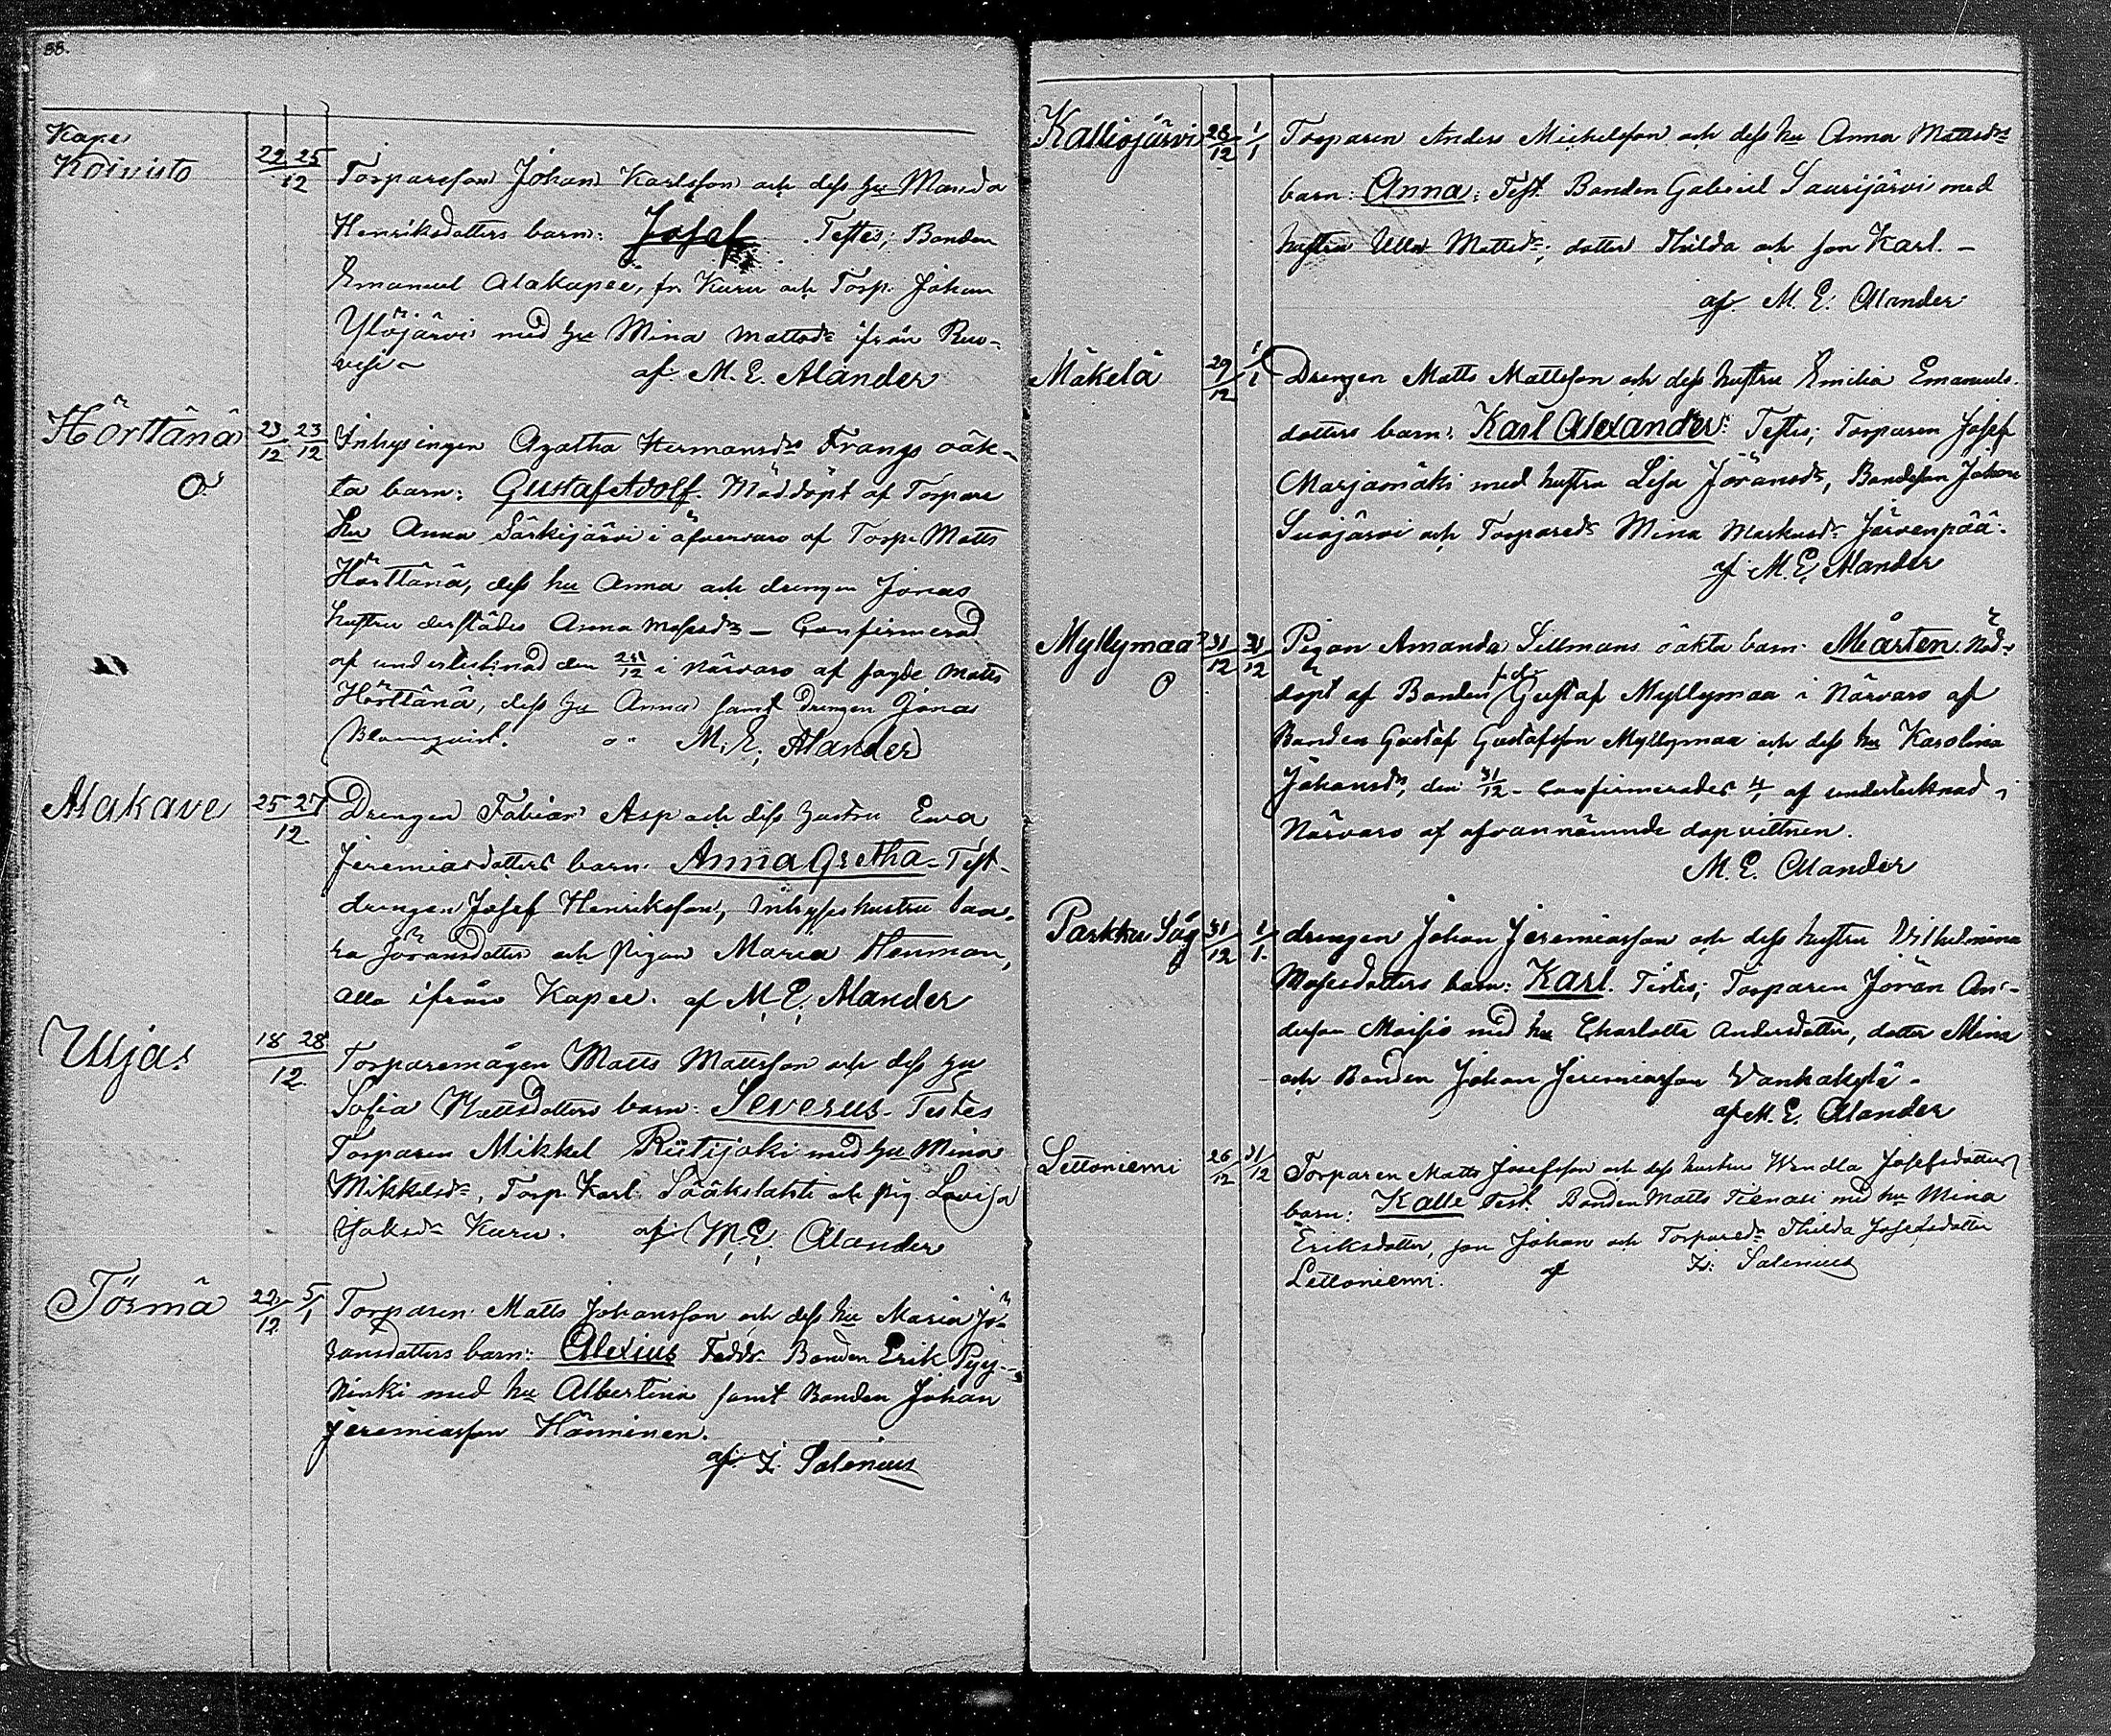 88.
Kape
Koivisto 22 25/12 Torparesson Johan Karlsson och dess hu Manda
Henriksdotters barn: Josef. Testes; Bonden
Emanuel Alakapee, fr. Kuru och Torp. Johan
Ylöjärvi med hu Mina Mattsdr ifrån Ruo-
vesi - af M. E. Alander
Hörttänä 23/12 23/12 Inhysingen Agatha Hermansdr Frangs oäk-
O. ta barn: Gustaf Adolf. Nöddöpt af Torpare
hu Anna Särkijärvi i öfvervaro af Torp. Matts
Hörttänä, dess hu Anna och drengen Jonas
hustru derstädes Anna Mosesdr - Confirmerad
af undertecknad den /12 i närvaro af sagde Matts
Hörttänä, dess hu Anna samt drengen Jonas
Blomqvist. M. E. Alander
Alakave 25 27/12 Drengen Fabian Asp och dess hustru Eva
Jeremiasdotters barn. Anna Gretha - Test.
drengen Josef Henriksson, Inhyseshustru Saa-
ra Jöransdotter och pigan Maria Heuman,
alla ifrån Kapee. af M. E. Alander
Urjas 18 28/12 Torparemågen Matts Mattsson och dess hu
Sofia Mattsdotters barn: Severus. Testes
Torparen Mikkel Riitijoki med hu Mina
Mikkelsdr, Torp. Karl Sääkslahti och pig. Lovisa
Jaksdr Kuru. af M. E. Alander
Törmä 22/12 5/1 Torparen Matts Johansson och dess hu Maria Jö-
ransdotters barn: Alexius Faddr. Bonden Erik Pyy-
ninki med hu Albertina samt Bonden Johan
Jeremiasson Hänninen.
af Z. Salenius
Kalliojärvi 28/12 1/1 Torparen Anders Michelsson och dess hu Anna Mattsdrs
barn: Anna; Test. Bonden Gabriel Saarijärvi med
hustru Ulla Mattsdr; dotter Thilda och son Karl. -
af M. E. Alander
Mäkelä 29/12 1/1 Drengen Matts Mattsson och dess hustru Emilia Emanuels-
dotters barn: Karl Alexander: Testes; Torparen Josef
Marjamäki med hustru Lisa Jöransdr, Bondeson Johan
Suojärvi och Torparedr Mina Markusdr Järvenpää.
af M. E. Alander
Myllymaa 31/12 31/12 Pigan Amanda Sillmans oäkta barn. Mårten. Nöd-
O döpt af Bonden f.d. Gustaf Myllymaa i Närvaro af
Bonden Gustaf Gustafsson Myllymaa och dess hu Karolina
Johansdr, den 31/12 - Confirmerades af undertecknad i
Närvaro af ofvannämnde dopvittnen.
M. E. Alander
Parkku Såg 31/12 1/1. drengen Johan Jeremiasson och dess hustru Vilhelmina
Mosesdotters barn: Karl. Testes; Torparen Jöran An-
dersson Moisio med hu Charlotta Andersdotter, dotter Mina
och Bonden Johan Jeremiasson Vanhakylä.
af M. E. Alander
Lettoniemi 26/12 31/12 Torparen Matts Josefsson och dess hustru Wendla Josefsdotters
barn: Kalle Test. Bonden Matts Tienari med hu Mina
Eriksdotter, son Johan och Torparedr Thilda Josefsdotter
Lettoniemi. af Z. Salenius